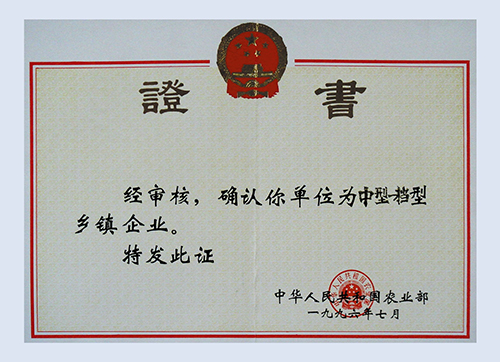 證書
经审核，确认你单位为中型一档型
乡镇企业。
特发此证
中华人民共和国农业部
一九九六年七月